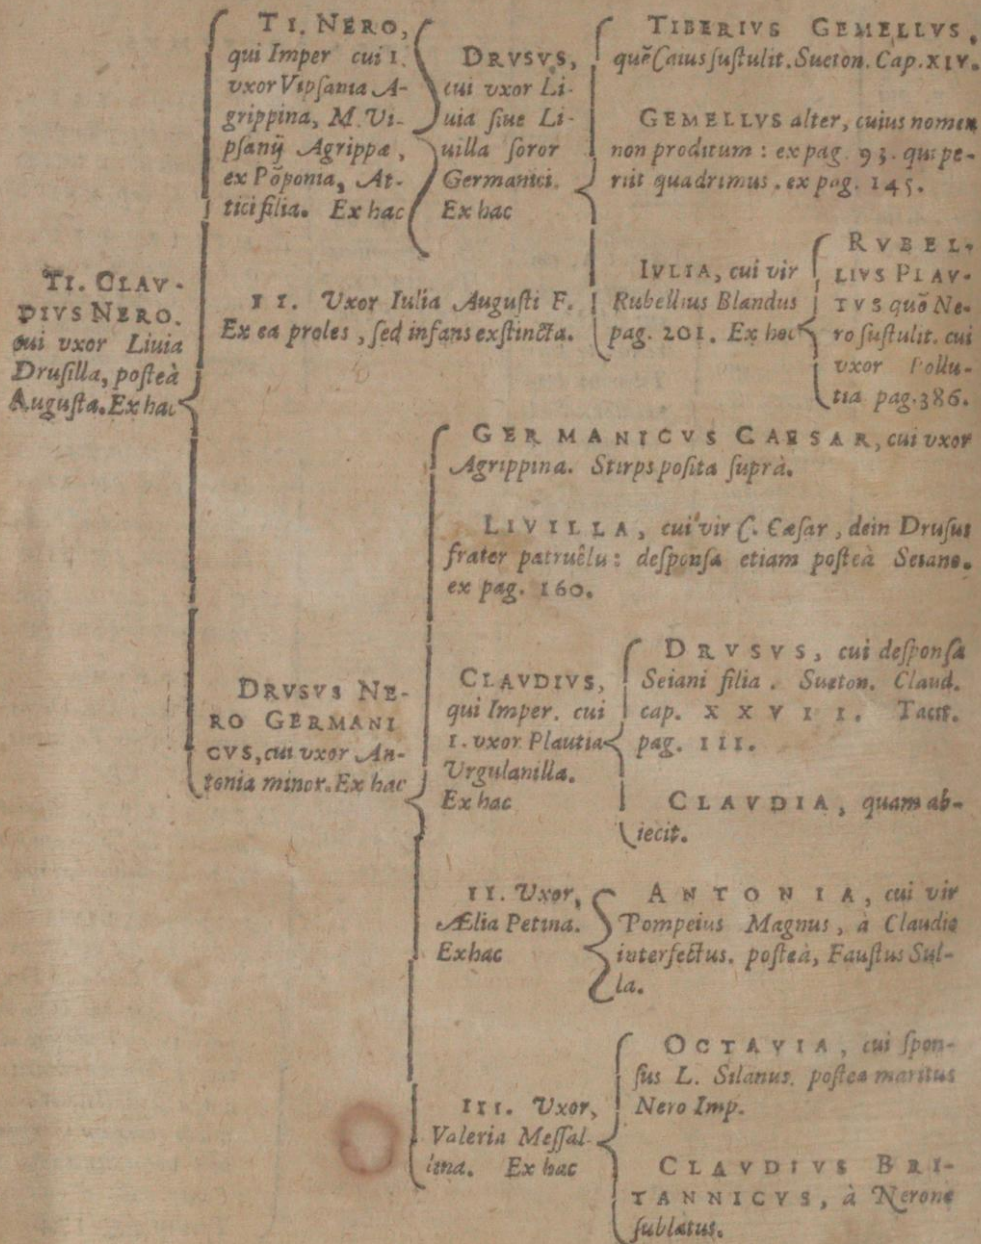 TI. CLAV-
DIVS NERO.
cui vxor Liuia
Drusilla, posteà
Augusta. Ex hac
TI. NERO,
qui Imper cui I.
vxor Vipsania A-
grippina, M. Vi-
psanij Agrippæ,
ex Põponia, At-
tici filia. Ex hac
DRVSVS,
cui vxor Li-
uia siue Li-
uilla soror
Germanici.
Ex hac
TIBERIVS GEMELLVS,
quẽ Caius sustulit. Sueton. Cap. XIV.
GEMELLVS alter, cuius nomen
non proditum: ex pag. 93. qui pe-
riit quadrimus. ex pag. 145.
IVLIA, cui vir
Rubellius Blandus
pag. 201. Ex hoc
RVBEL-
LIVS PLAV-
TVS quõ Ne-
ro sustulit. cui
vxor Pollu-
tia pag. 386.
II. Uxor Iulia Augusti F.
Ex ea proles, sed infans exstincta.
DRVSVS NE-
RO GERMANI
CVS, cui vxor An-
tonia minor. Ex hac
GERMANICVS CAESAR, cui vxor
Agrippina. Stirps posita suprà.
LIVILLA, cui vir C. Cæsar, dein Drusus
frater patruêlu: desponsa etiam posteà Seiano.
ex pag. 160.
CLAVDIVS,
qui Imper. cui
I. vxor Plautia
Urgulanilla.
Ex hac
DRVSVS, cui desponsa
Seiani filia. Sueton. Claud.
cap. XXVII. Tacit.
pag. III.
CLAVDIA, quam ab-
iecit.
II. Uxor,
Ælia Petina.
Ex hac
ANTONIA, cui vir
Pompeius Magnus, à Claudio
interfectus. posteà, Faustus Sul-
la.
III. Uxor,
Valeria Messal-
lina. Ex hac
OCTAVIA, cui spon-
sus L. Silanus. postea maritus
Nero Imp.
CLAVDIVS BRI-
TANNICVS, à Nerone
sublatus.